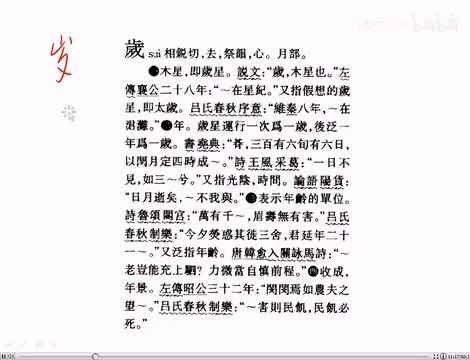 岁
歲 suì 相銳切，去，祭韻，心。月部。
❶木星，即歲星。説文：“歲，木星也。”左
傳襄公二十八年：“～在星紀。”又指假想的歲
星，即太歲。吕氏春秋序意：“維秦八年，～在
涒灘。”❷年。歲星運行一次爲一歲，後泛一
年爲一歲。書堯典：“朞，三百有六旬有六日，
以閏月定四時成～。”詩王風采葛：“一日不
見，如三～兮。”又指光陰，時間。論語陽貨：
“日月逝矣，～不我與。”❸表示年齡的單位。
詩魯頌閟宫：“萬有千～，眉壽無有害。”吕氏
春秋制樂：“今夕熒惑其徙三舍，君延年二十
一～。”又泛指年齡。唐韓愈入關詠馬詩：“～
老豈能充上駟？力微當自慎前程。”❹收成，
年景。左傳昭公三十二年：“閔閔焉如農夫之
望～。”吕氏春秋制樂：“～害則民飢，民飢必
死。”
bilibili